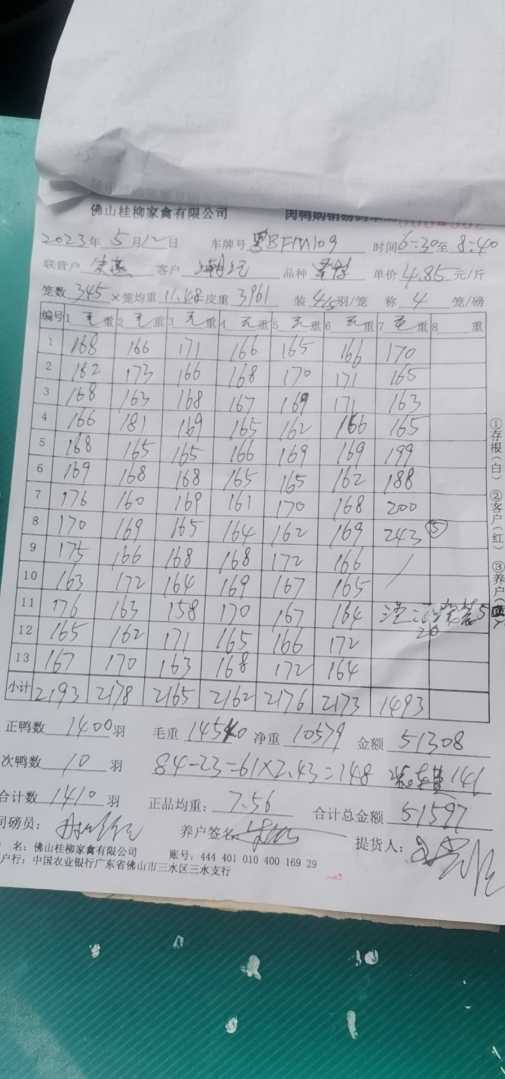 佛山桂柳家禽有限公司
2023年 5月12日 车牌号 粤BFM109 时间6:30至8:40
联营户 客户 品种 单价4.85元/斤
笼数 345 × 笼均重 11.48 皮重 3961 装 4.5羽/笼 称 4 笼/磅
编号 1 毛重 2 毛重 3 毛重 4 毛重 5 毛重 6 毛重 7 毛重 8 重
1 168 166 171 166 165 166 170
2 162 173 166 168 170 171 165
3 168 163 168 167 169 171 163
4 166 181 169 165 162 166 165
5 168 165 165 166 169 169 199
6 169 168 168 165 165 162 188
7 176 160 169 161 170 168 200
8 170 169 165 164 162 169 243 ⑤
9 175 166 168 168 172 166 /
10 163 172 164 169 167 165
11 176 163 158 170 167 164
12 165 162 171 165 166 172
13 167 170 163 168 172 164
小计 2193 2178 2165 2162 2176 2173 1493
①存根(白) ②客户(红) ③养户
正鸭数 1400 羽 毛重 14540 净重 10579 金额 51308
次鸭数 10 羽 84-23=61×2.43=148 141
合计数 1410 羽 正品均重: 7.56 合计总金额 51597
司磅员: 养户签名 提货人:
名: 佛山桂柳家禽有限公司 账号: 444 401 010 400 169 29
户行: 中国农业银行广东省佛山市三水区三水支行